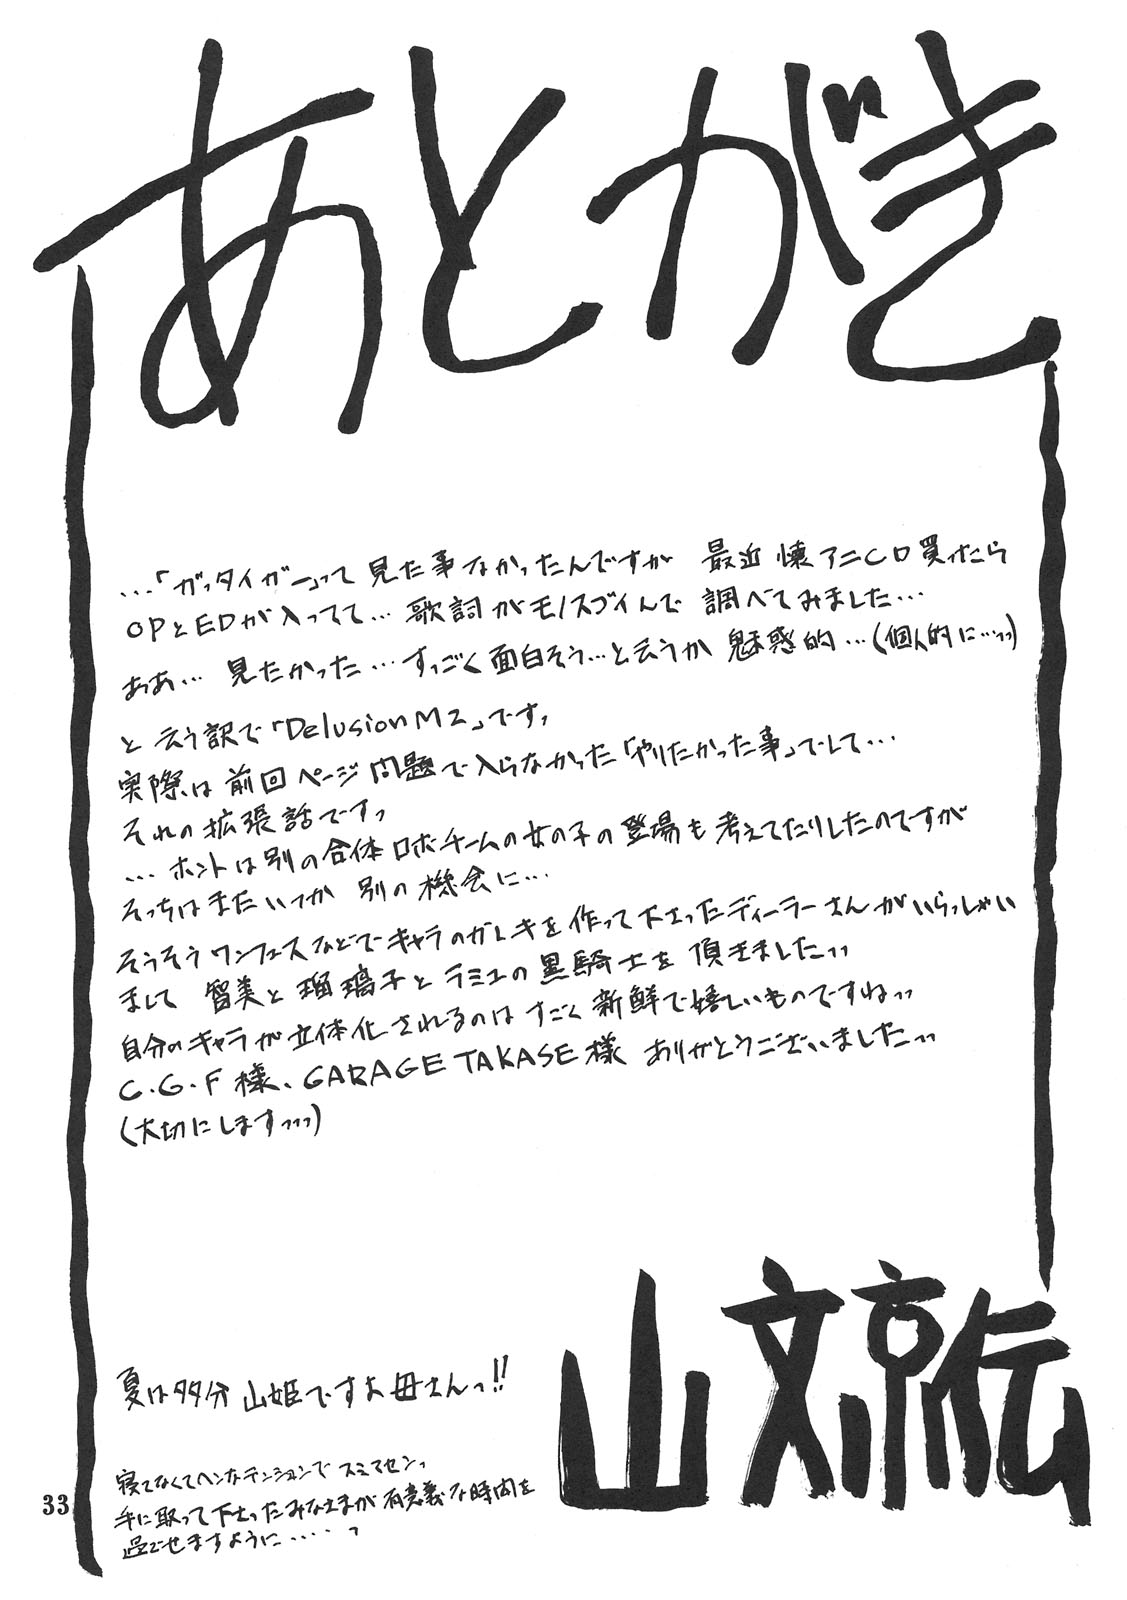 あとがき
…「ガッタイガー」って見た事なかったんですが 最近 懐アニCD買ったら
OPとEDが入ってて…歌詞がモノスゴイんで 調べてみました…
ああ… 見たかった…すっごく面白そう…と云うか 魅惑的…(個人的に…っっ)
と云う訳で「Delusion M2」ですっ
実際は前回ページ問題で入らなかった「やりたかった事」でして…
それの拡張話ですっ
…ホントは別の合体ロボチームの女の子の登場も考えてたりしたのですが
そっちはまたいつか 別の機会に…
そうそうワンフェスなどでキャラのガレキを作って下さったディーラーさんがいらっしゃい
まして 智美と瑠璃子とラミユの黒騎士を 頂きましたっっ
自分のキャラが立体化されるのはすごく新鮮で嬉しいものですねっっ
C.G.F様、GARAGE TAKASE様 ありがとうございましたっっ
(大切にしますっっっ)
山文京伝
夏は多分 山姫ですお母さんっ!!
寝てなくてヘンなテンションでスミマセンっ
手に取って下さったみなさまが有意義な時間を
過ごせますように・・・・っ
33